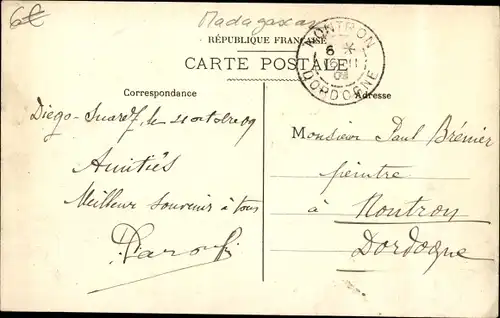 6€
Madagascar
RÉPUBLIQUE FRANÇAISE
CARTE POSTALE
NONTRON
6 *
16 - 11
09
DORDOGNE
Correspondance
Adresse
Diego-Suarez, le 21 octobre 09
Amitiés
Meilleur souvenir à tous
Monsieur Paul Brénier
peintre
à Nontron
Dordogne